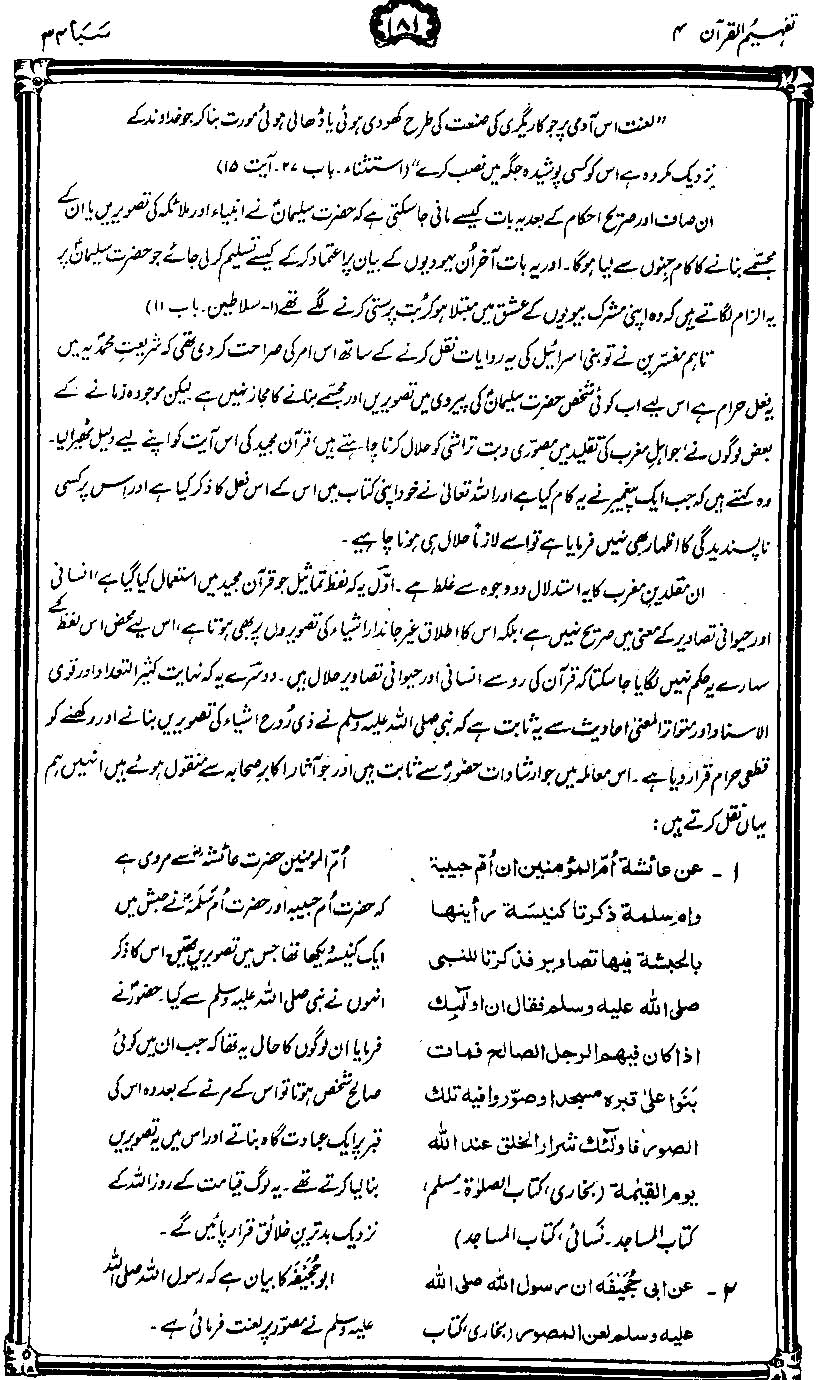 تفہیم القرآن ۴
۱۸۱
سَبَا ۳۴
”لعنت اس آدمی پر جو کاریگری کی صنعت کی طرح کھودی ہوئی یا ڈھالی ہوئی مورت بنا کر جو خداوند کے
نزدیک مکروہ ہے اس کو کسی پوشیدہ جگہ میں نصب کرے“ (استثناء۔ باب ۲۷۔ آیت ۱۵)
ان صاف اور صریح احکام کے بعد یہ بات کیسے مانی جا سکتی ہے کہ حضرت سلیمانؑ نے انبیاء اور ملائکہ کی تصویریں یا ان کے
مجسمے بنانے کا کام جنوں سے لیا ہوگا۔ اور یہ بات آخر اُن یہودیوں کے بیان پر اعتماد کر کے کیسے تسلیم کر لی جائے جو حضرت سلیمانؑ پر
یہ الزام لگاتے ہیں کہ وہ اپنی مشرک بیویوں کے عشق میں مبتلا ہو کر بُت پرستی کرنے لگے تھے (۱-سلاطین۔ باب ۱۱)
تاہم مفسرین نے تو بنی اسرائیل کی یہ روایات نقل کرنے کے ساتھ اس امر کی صراحت کر دی تھی کہ شریعتِ محمدؐیہ میں
یہ فعل حرام ہے اس لیے اب کوئی شخص حضرت سلیمانؑ کی پیروی میں تصویریں اور مجسمے بنانے کا مجاز نہیں ہے لیکن موجودہ زمانے کے
بعض لوگوں نے، جو اہلِ مغرب کی تقلید میں مصوّری و بت تراشی کو حلال کرنا چاہتے ہیں، قرآن مجید کی اس آیت کو اپنے لیے دلیل ٹھیرا لیا۔
وہ کہتے ہیں کہ جب ایک پیغمبر نے یہ کام کیا ہے اور اللہ تعالیٰ نے خود اپنی کتاب میں اس کے اس فعل کا ذکر کیا ہے اور اس پر کسی
ناپسندیدگی کا اظہار بھی نہیں فرمایا ہے تو اسے لازماً حلال ہی ہونا چاہیے۔
ان مقلدینِ مغرب کا یہ استدلال دو وجوہ سے غلط ہے۔ اوّل یہ کہ لفظ تماثیل جو قرآن مجید میں استعمال کیا گیا ہے، انسانی
اور حیوانی تصاویر کے معنی میں صریح نہیں ہے، بلکہ اس کا اطلاق غیر جاندار اشیاء کی تصویروں پر بھی ہوتا ہے، اس لیے محض اس لفظ کے
سہارے یہ حکم نہیں لگایا جا سکتا کہ قرآن کی رو سے انسانی اور حیوانی تصاویر حلال ہیں۔ دوسرے یہ کہ نہایت کثیر التعداد اور قوی
الاسناد اور متواتر المعنیٰ احادیث سے یہ ثابت ہے کہ نبی صلی اللہ علیہ وسلم نے ذی رُوح اشیاء کی تصویریں بنانے اور رکھنے کو
قطعی حرام قرار دیا ہے۔ اس معاملہ میں جو ارشادات حضورؐ سے ثابت ہیں اور جو آثار اکابر صحابہ سے منقول ہوئے ہیں انہیں ہم
یہاں نقل کرتے ہیں:
۱- عن عائشة اُمّ المؤمنين ان اُمّ حبيبة
وام سلمة ذكرتا كنيسة رأينها
بالحبشة فيها تصاوير فذكرتا للنبى
صلى الله عليه وسلم فقال ان اولٓئك
اذا كان فيهم الرجل الصالح فمات
بَنَوا علىٰ قبره مسجدا وصوّروا فيه تلك
الصور فاولٓئك شرار الخلق عند الله
يوم القيٰمة (بخاری، کتاب الصلوٰة۔ مسلم،
کتاب المساجد۔ نسائی، کتاب المساجد)
اُمّ المومنین حضرت عائشہؓ سے مروی ہے
کہ حضرت اُمّ حبیبہ اور حضرت اُمّ سَلَمَہؓ نے حبش میں
ایک کنیسہ دیکھا تھا جس میں تصویریں تھیں، اس کا ذکر
انہوں نے نبی صلی اللہ علیہ وسلم سے کیا۔ حضورؐ نے
فرمایا ان لوگوں کا حال یہ تھا کہ جب ان میں کوئی
صالح شخص ہوتا تو اس کے مرنے کے بعد وہ اس کی
قبر پر ایک عبادت گاہ بناتے اور اس میں یہ تصویریں
بنا لیا کرتے تھے۔ یہ لوگ قیامت کے روز اللہ کے
نزدیک بدترین خلائق قرار پائیں گے۔
۲- عن ابى جُحَيفه ان رسول الله صلى الله
عليه وسلم لعن المصور (بخاری، کتاب
ابو جُحَیفَہ کا بیان ہے کہ رسول اللہ صلی اللہ
علیہ وسلم نے مصوّر پر لعنت فرمائی ہے۔